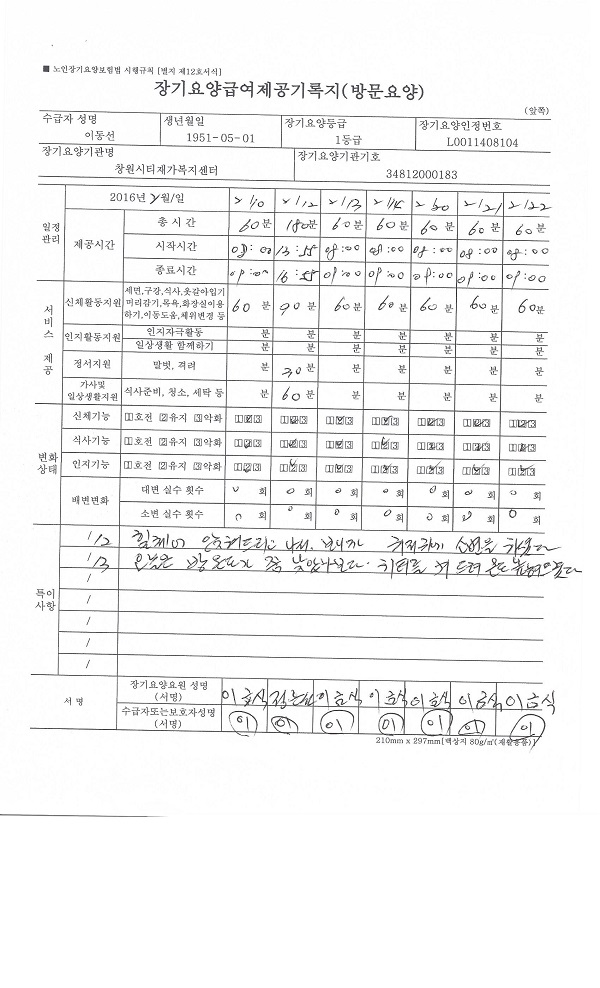 ■ 노인장기요양보험법 시행규칙 [별지 제12호서식]
장기요양급여제공기록지(방문요양)
(앞쪽)
수급자 성명 생년월일 장기요양등급 장기요양인정번호
이동선 1951-05-01 1등급 L0011408104
장기요양기관명 장기요양기관기호
창원시티재가복지센터 34812000183
일정관리 2016년 2월/일 2 1/10 2 1/12 2 1/13 2 1/20 2 1/21 2 1/22
제공시간 총 시 간 60분 180분 60분 60분 60분 60분 60분
시작시간 08:00 13:55 08:00 08:00 08:00 08:00 08:00
종료시간 09:00 16:55 09:00 09:00 09:00 09:00 09:00
서비스 제공 신체활동지원 세면,구강,식사,옷갈아입기 머리감기,목욕,화장실이용 하기,이동도움,체위변경 등 60 분 90 분 60분 60 분 60 분 60 분 60분
인지활동지원 인지자극활동 분 분 분 분 분 분 분
일상생활 함께하기 분 분 분 분 분 분 분
정서지원 말벗, 격려 분 30 분 분 분 분 분 분
가사및 일상생활지원 식사준비, 청소, 세탁 등 분 60 분 분 분 분 분 분
변화상태 신체기능 1호전 2유지 3악화 123 123 123 123 123 123 123
식사기능 1호전 2유지 3악화 123 123 123 123 123 123 123
인지기능 1호전 2유지 3악화 123 123 123 123 123 123 123
배변변화 대변 실수 횟수 0 회 0 회 0 회 0 회 0 회 0 회 0 회
소변 실수 횟수 0 회 0 회 0 회 0 회 0 회 0 회 0 회
특이사항 1/2
1/3 오늘은 방온도가 좀
/
/
/
/
/
서 명 장기요양요원 성명 (서명) 이금식 이금식 이금식 이금식 이금식 이금식
수급자또는보호자성명 (서명) 이 이 이 이 이 이 이
210mm x 297mm[백상지 80g/㎡(재활용품)]